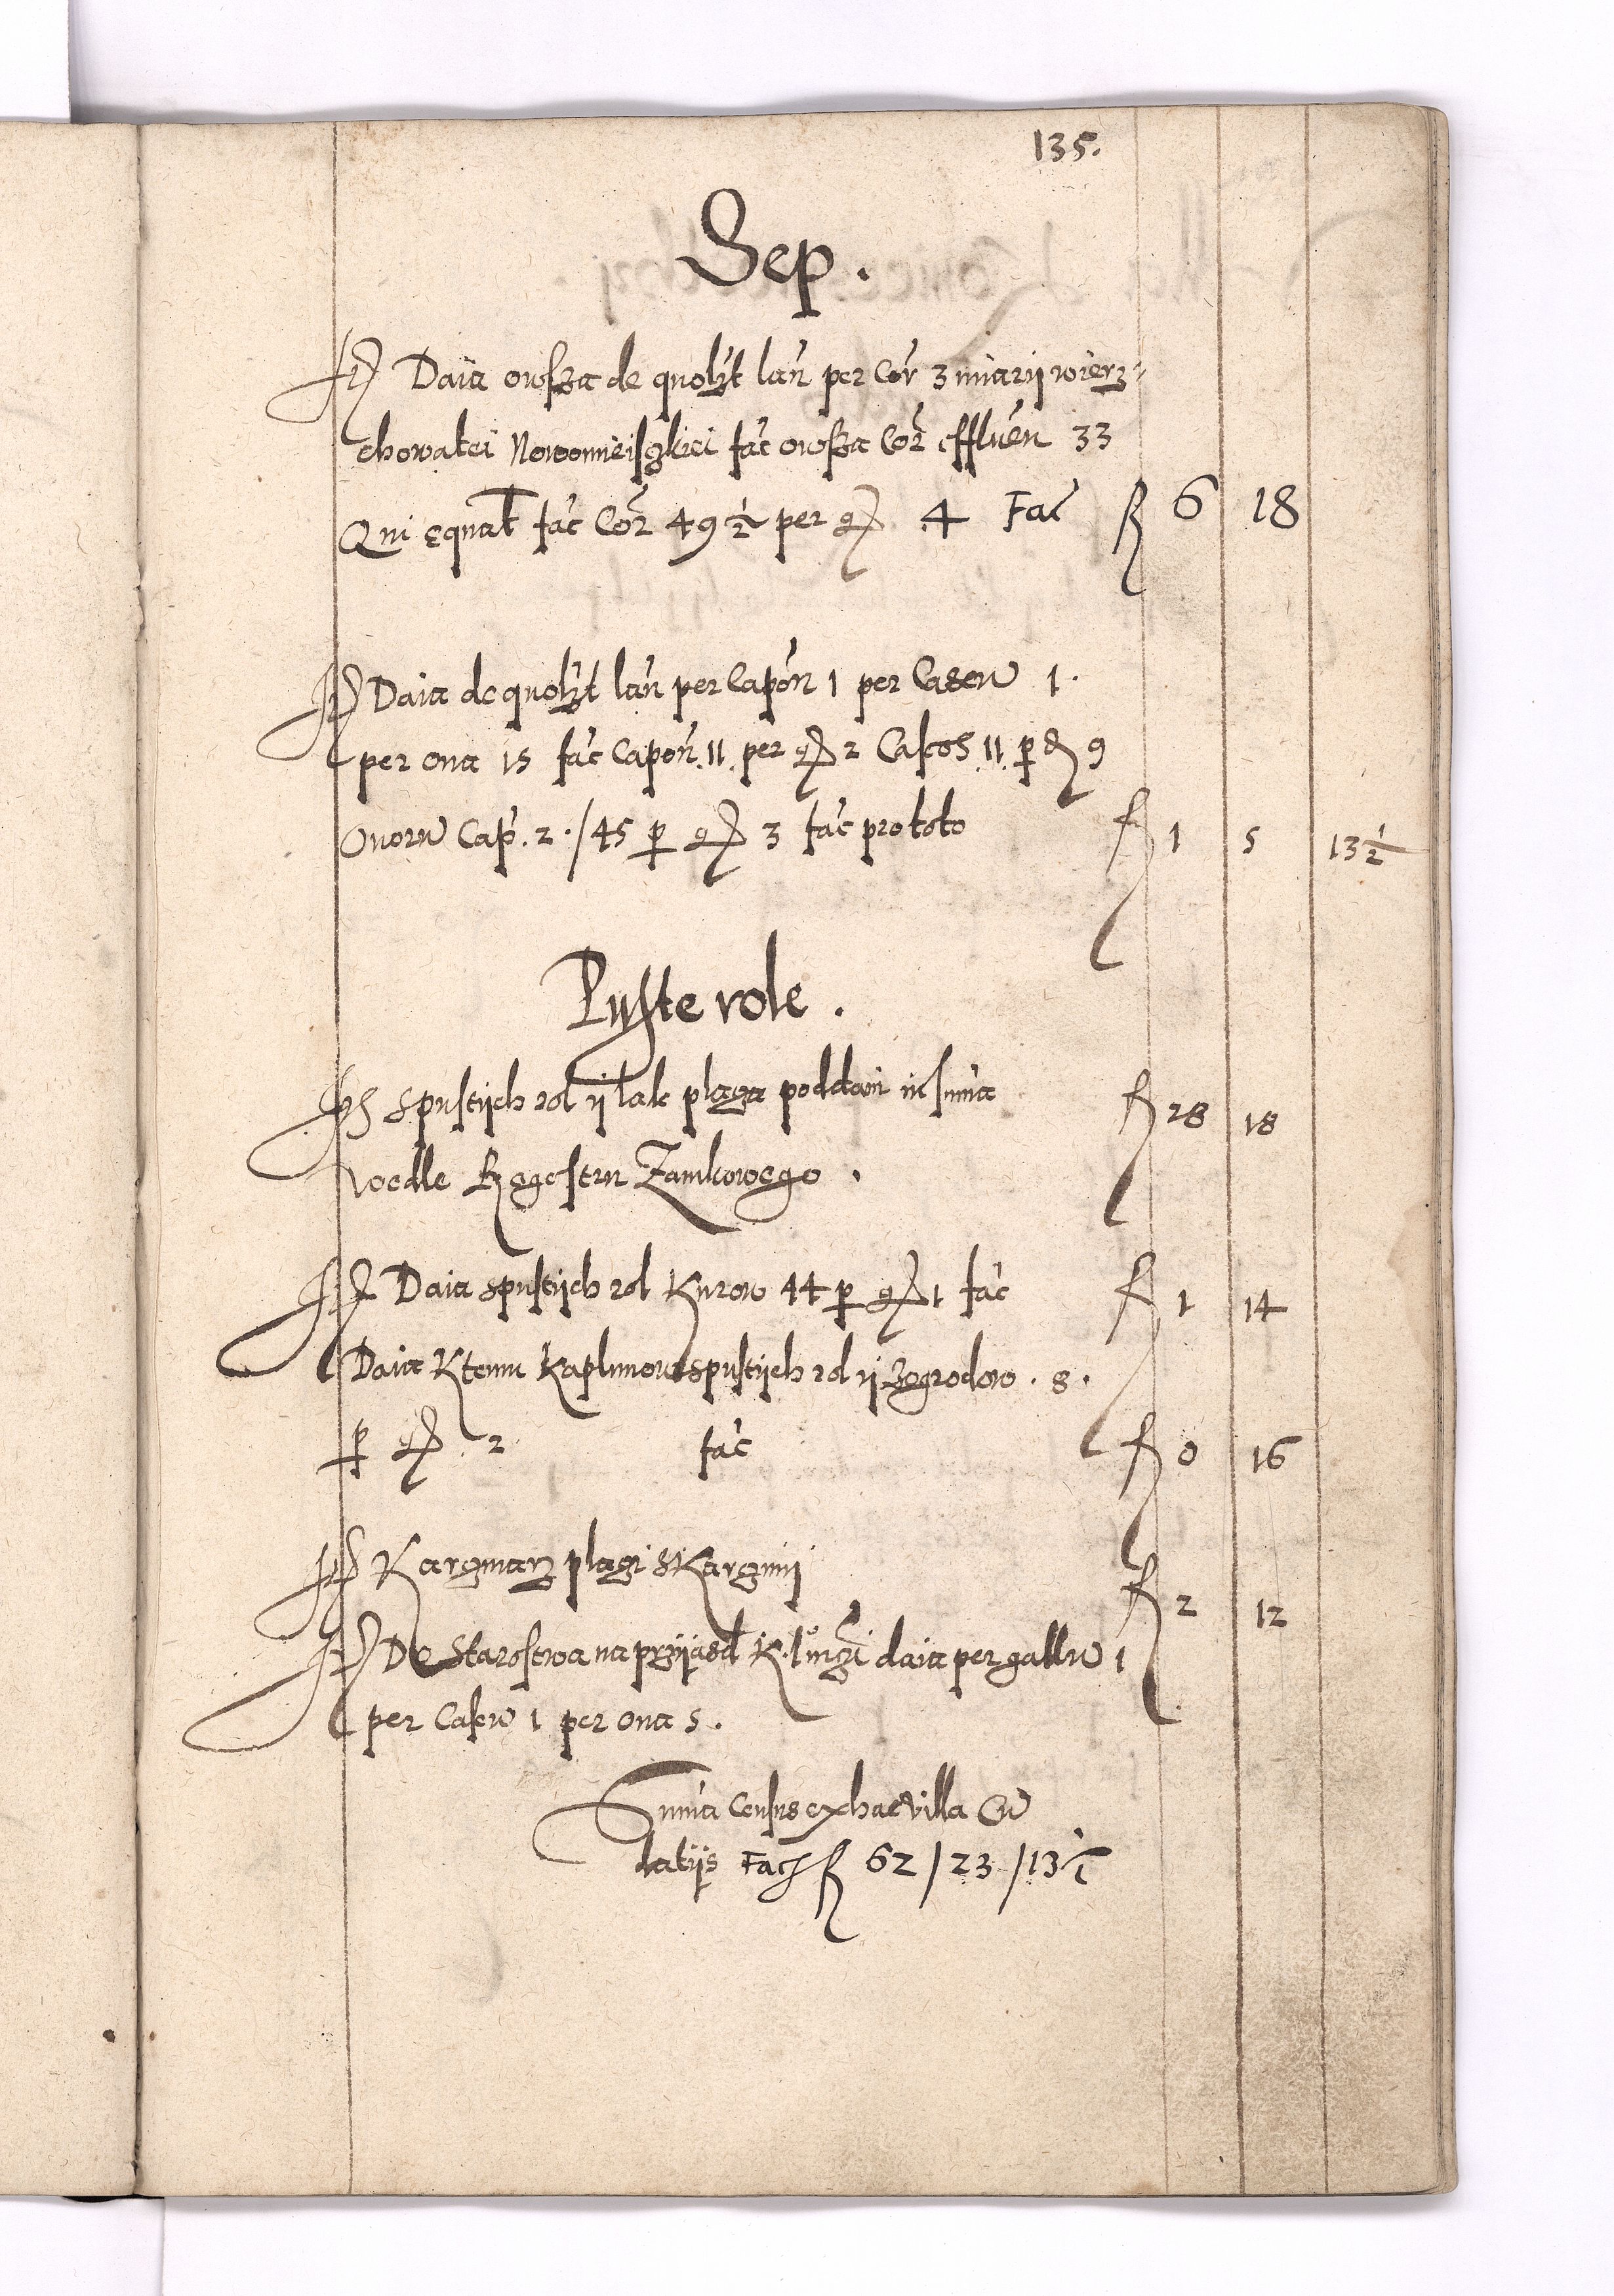 135.
Sep.
It Daia owsza de quolzt lań per Cor 3 miarÿ wierz-
chowatei Nowomieiszkiei fac̄ owsza Cor̄ effluen 33
Qui equat̄ fac̄ Cor̄ 49 1/2 per gr 4 Fac̄ fl 6 18
It Daia de quolzt lań per Capón 1 per Caseu 1.
per oua 15 fac̄ Capon̄. 11. per gr 2 Caseos 11. p̱ d 9
Ouoru Cap̄. 2. / 45 p̱ gr 3 fac̄ pro toto fl 1 5 13 1/2
Puste role.
It spustÿch rol ÿ lak plaza poddani in suma fl 28 18
wedle Regestru Zamkowego.
It Daia spustÿch rol Kurow 44 p̱ gr 1 fac̄ fl 1 14
Daia Ktemu Kaplunow spustÿch rol ÿ Zogrodow. 8.
p̱ gr 2 fac̄ fl 0 16
It Karzmarz plazi sKarzmÿ fl 2 12
It De Starostwa na przÿiasd K. daia per gallu 1
per Caseu 1 per oua 5.
Suma Census ex hac villa Cu
datÿs Fac̄ fl 62 / 23 / 13 1/2